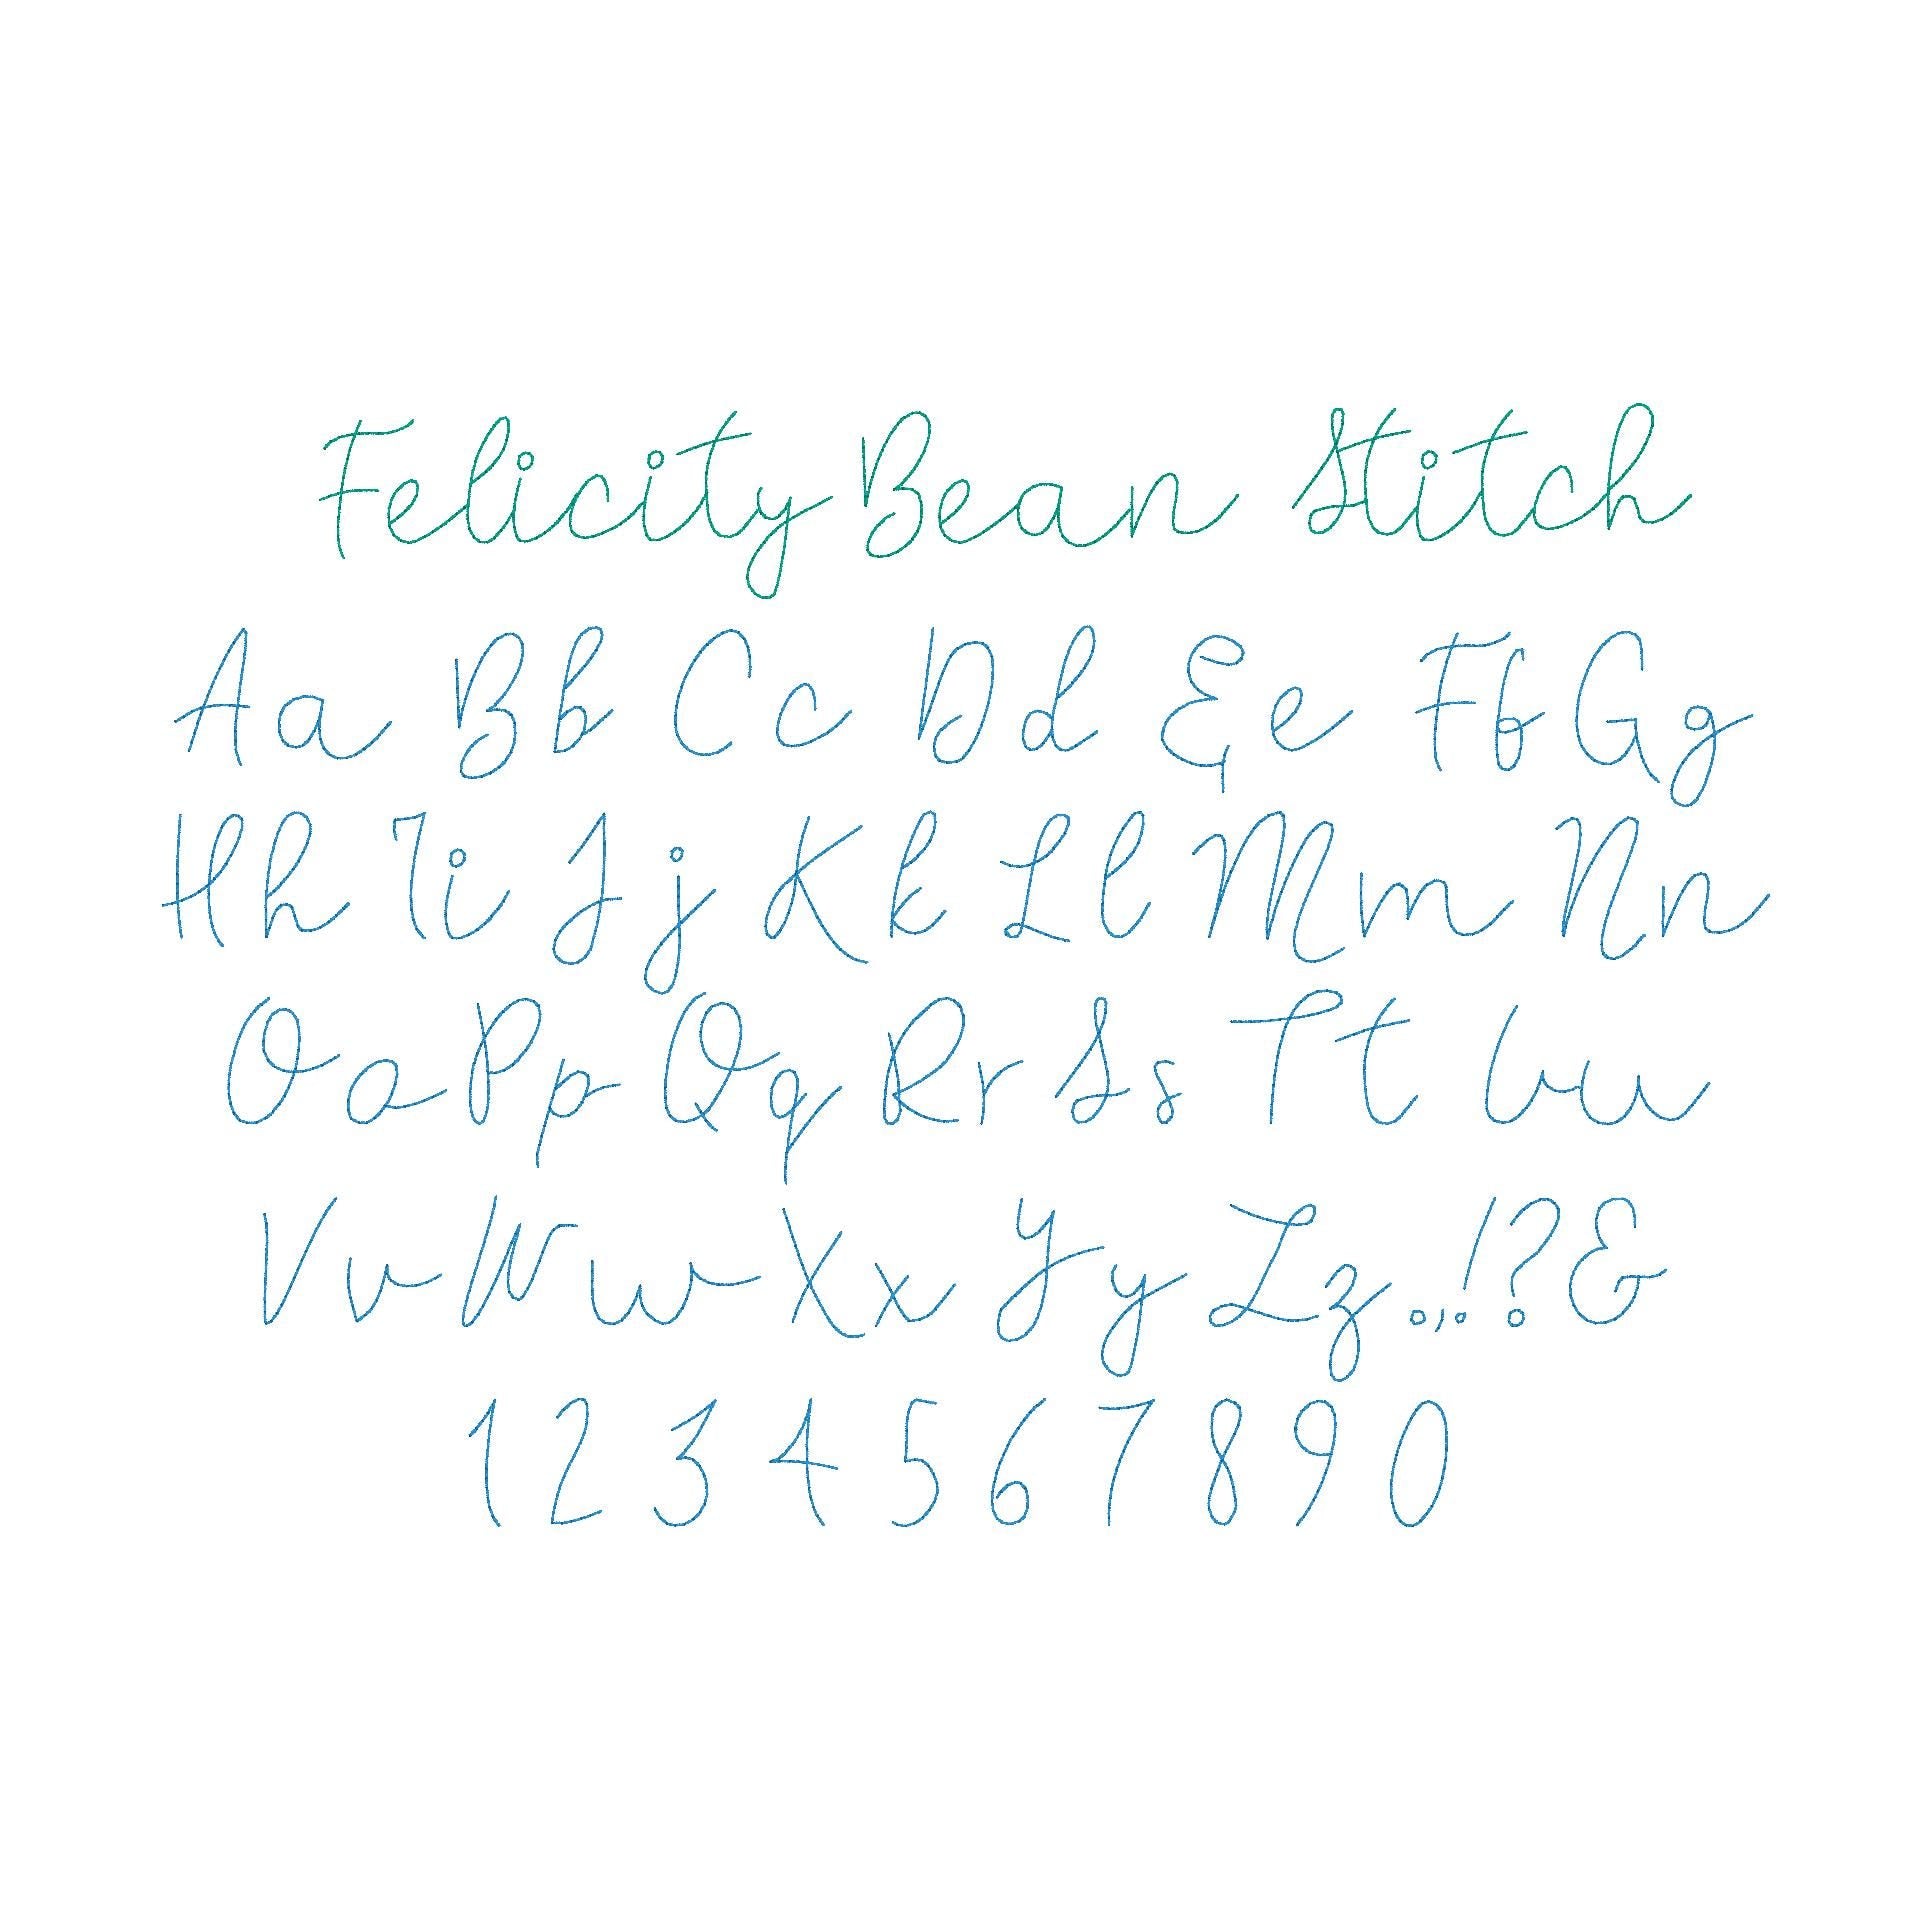 Felicity Bean Stitch
Aa Bb Cc Dd Ee Ff Gg
Hh Ii Jj Kk Ll Mm Nn
Oo Pp Qq Rr Ss Tt Uu
Vv Ww Xx Yy Zz .,.!? &
1 2 3 4 5 6 7 8 9 0